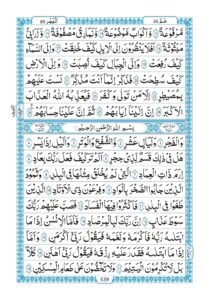 الفجر ٨٩ عمّ ٣٠
مَّرْفُوْعَةٌ ۝ وَّاَكْوَابٌ مَّوْضُوْعَةٌ ۝ وَّنَمَارِقُ مَصْفُوْفَةٌ ۝ وَّزَرَابِيُّ
مَبْثُوْثَةٌ ۝ اَفَلَا يَنْظُرُوْنَ اِلَى الْاِبِلِ كَيْفَ خُلِقَتْ ۝ وَاِلَى السَّمَآءِ
كَيْفَ رُفِعَتْ ۝ وَاِلَى الْجِبَالِ كَيْفَ نُصِبَتْ ۝ وَاِلَى الْاَرْضِ
كَيْفَ سُطِحَتْ ۝ فَذَكِّرْ اِنَّمَآ اَنْتَ مُذَكِّرٌ ۝ لَسْتَ عَلَيْهِمْ
بِمُصَۜيْطِرٍ ۝ اِلَّا مَنْ تَوَلّٰى وَكَفَرَ ۝ فَيُعَذِّبُهُ اللّٰهُ الْعَذَابَ
الْاَكْبَرَ ۝ اِنَّ اِلَيْنَآ اِيَابَهُمْ ۝ ثُمَّ اِنَّ عَلَيْنَا حِسَابَهُمْ ۝
بِسْمِ اللّٰهِ الرَّحْمٰنِ الرَّحِيْمِ
وَالْفَجْرِ ۝ وَلَيَالٍ عَشْرٍ ۝ وَّالشَّفْعِ وَالْوَتْرِ ۝ وَالَّيْلِ اِذَا يَسْرِ ۝
هَلْ فِيْ ذٰلِكَ قَسَمٌ لِّذِيْ حِجْرٍ ۝ اَلَمْ تَرَ كَيْفَ فَعَلَ رَبُّكَ بِعَادٍ ۝
اِرَمَ ذَاتِ الْعِمَادِ ۝ الَّتِيْ لَمْ يُخْلَقْ مِثْلُهَا فِي الْبِلَادِ ۝ وَثَمُوْدَ
الَّذِيْنَ جَابُوا الصَّخْرَ بِالْوَادِ ۝ وَفِرْعَوْنَ ذِي الْاَوْتَادِ ۝ الَّذِيْنَ
طَغَوْا فِي الْبِلَادِ ۝ فَاَكْثَرُوْا فِيْهَا الْفَسَادَ ۝ فَصَبَّ عَلَيْهِمْ رَبُّكَ
سَوْطَ عَذَابٍ ۝ اِنَّ رَبَّكَ لَبِالْمِرْصَادِ ۝ فَاَمَّا الْاِنْسَانُ اِذَا مَا
ابْتَلٰىهُ رَبُّهٗ فَاَكْرَمَهٗ وَنَعَّمَهٗ فَيَقُوْلُ رَبِّيْٓ اَكْرَمَنِ ۝ وَاَمَّآ اِذَا مَا
ابْتَلٰىهُ فَقَدَرَ عَلَيْهِ رِزْقَهٗ فَيَقُوْلُ رَبِّيْٓ اَهَانَنِ ۝ كَلَّا
بَلْ لَّا تُكْرِمُوْنَ الْيَتِيْمَ ۝ وَلَا تَحٰٓضُّوْنَ عَلٰى طَعَامِ الْمِسْكِيْنِ ۝
539